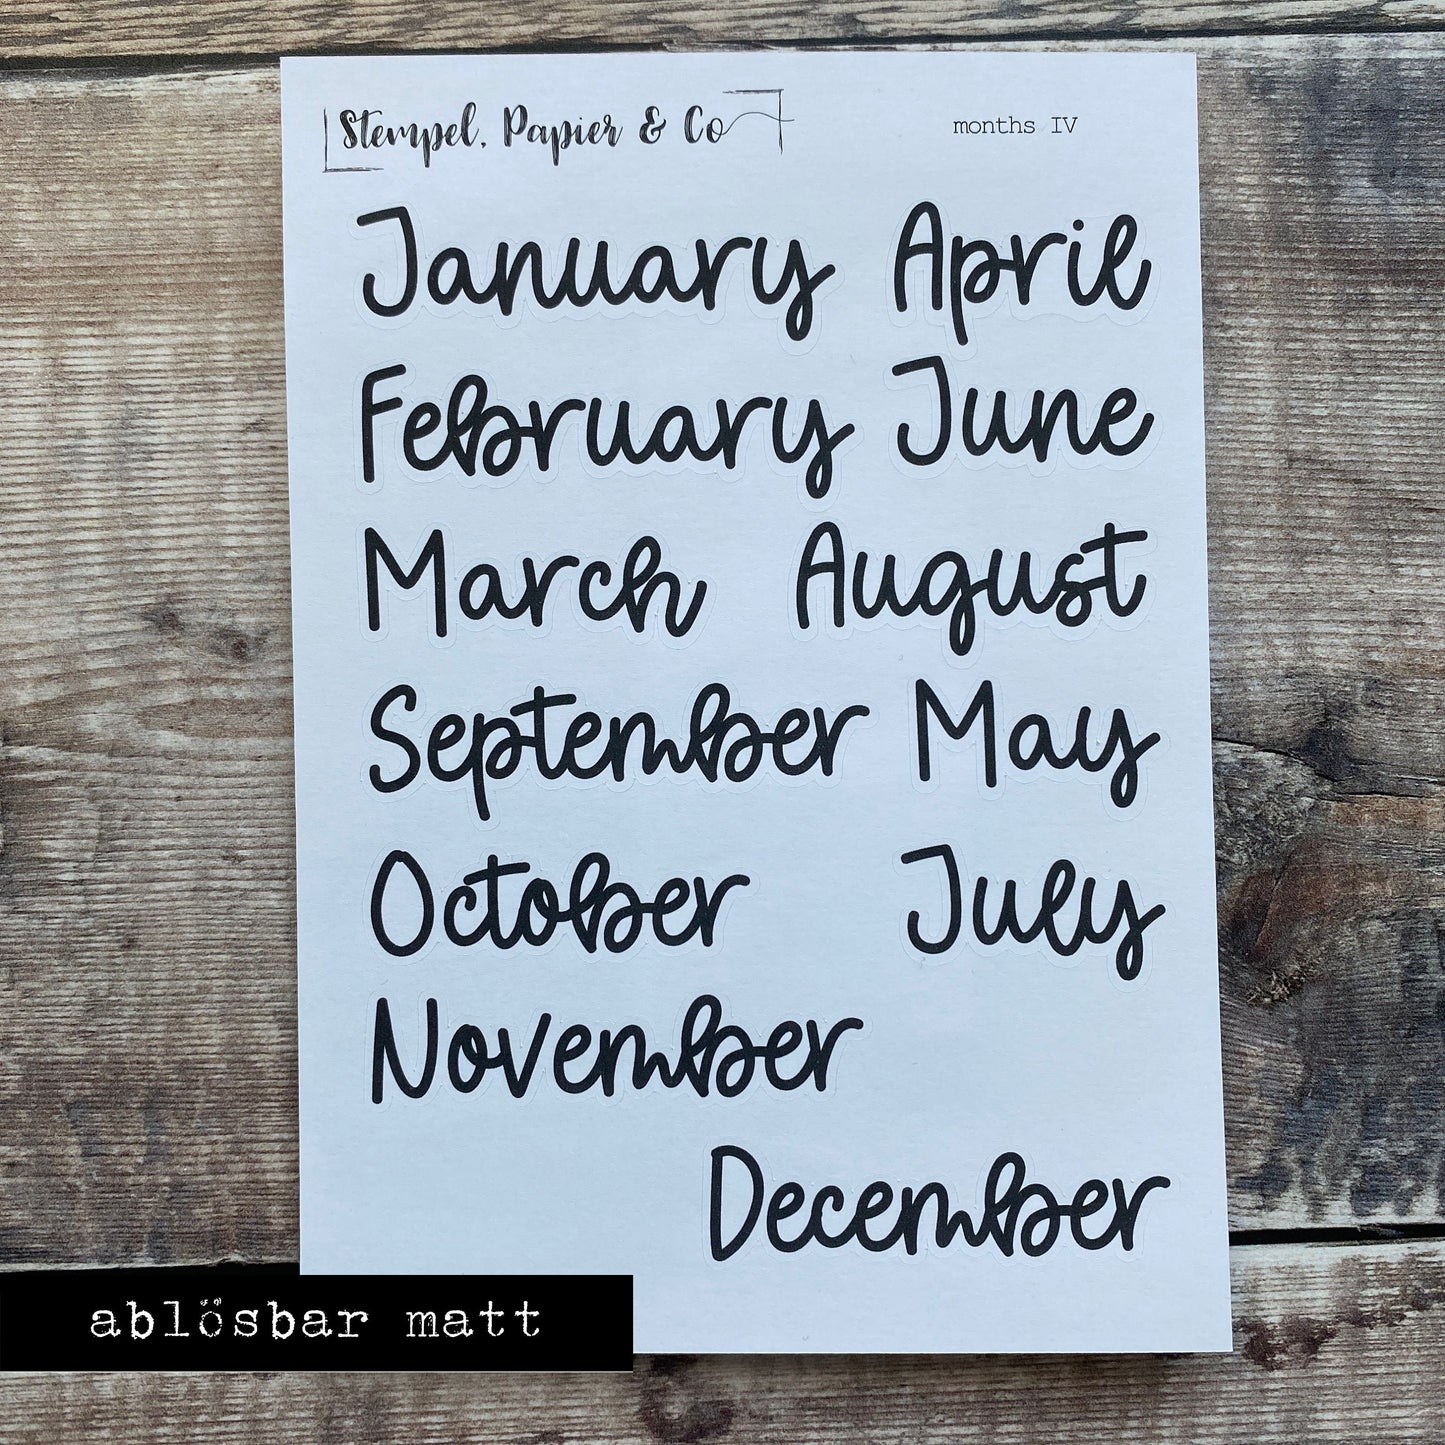 Stempel, Papier & Co
months IV
January April
February June
March August
September May
October July
November
December
ablösbar matt